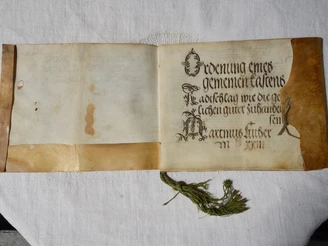 Ordenung eyns
gemeynen kastens
Radtschlag wie die ge
lichen guter zu handeln
sen
Martinus Luther
M XXIII